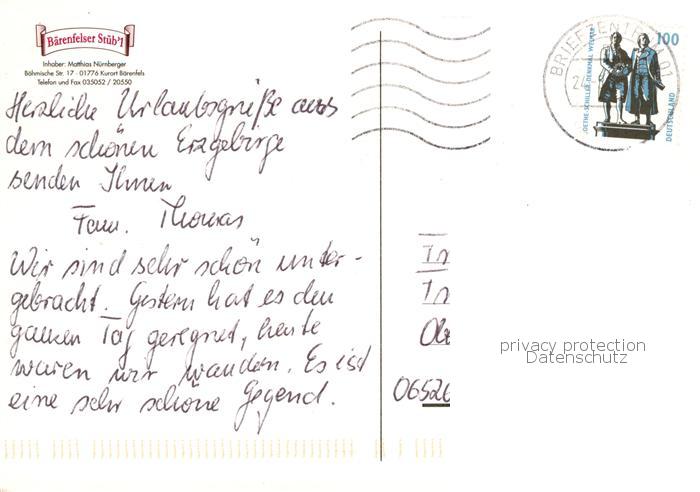 Bärenfelser Stüb'l
Inhaber: Matthias Nürnberger
Böhmische Str. 17 · 01776 Kurort Bärenfels
Telefon und Fax 035052 / 20550
Herzliche Urlaubsgrüße aus
dem schönen Erzgebirge
senden Ihnen
Fam. Thomas
Wir sind sehr schön unter-
gebracht. Gestern hat es den
ganzen Tag geregnet, heute
waren wir wandern. Es ist
eine sehr schöne Gegend.
BRIEFZENTRUM 01
100
GOETHE-SCHILLER-DENKMAL WEIMAR
DEUTSCHLAND
06526
privacy protection
Datenschutz